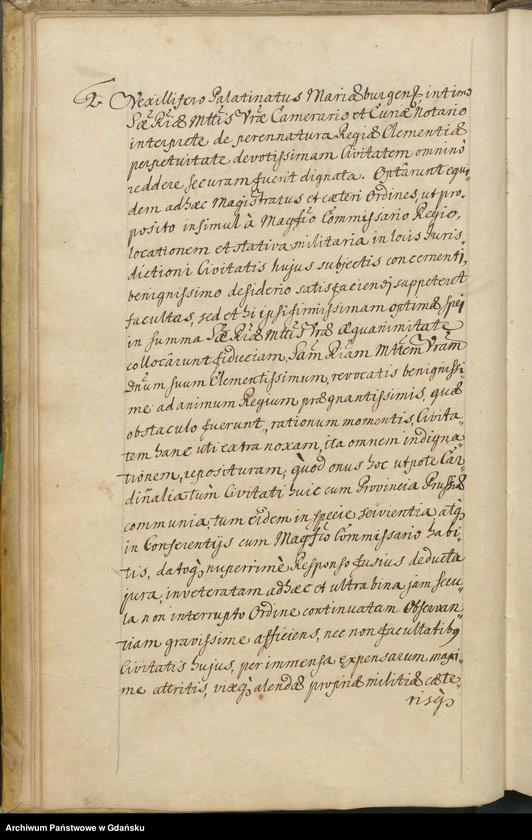 Vexillifero Palatinatus Mariæburgens: intimo
Sæ Ræ Mttis Vræ Camerario et Curiæ Notario
interprete de perennatura Regiæ Clementiæ
perpetuitate devotissimam Civitatem omnino
reddere securam fuerit dignata. Optârunt equi„
dem adhæc Magistratus et cæteri Ordines, ut pro„
posito insimul à Magfco Commissario Regio,
locationem et stativa militaria in locis Juris„
dictioni Civitatis hujus subjectis concernenti,
benignissimo desiderio satisfaciendj suppeteret
facultas, sed et hi ipsi firmissimam optimæ spej
in summa Sæ Ræ Mttis Vræ æquanimitate
collocârunt fiduciam, Sam Riam Mttem Vram
Dnum suum Clementissimum, revocatis benignissi„
me ad animum Regium prægnantissimis, quæ
obstaculo fuerunt, rationum momentis, Civita„
tem hanc uti extra noxam, ita omnem indigna„
tionem, reposituram; quòd onus hoc utpote Car„
dinalia tùm Civitati huic cum Provincia Prussiæ
communia, tum eidem in specie servientia atq3
in Conferentijs cum Magfco Commissario habi„
tis, datoq3 nuperrimè Responso fusius deducta
jura, inveteratam adhæc et ultra bina jam secu„
la non interrupto Ordine continuatam Observan„
tiam gravissime afficiens, nec non facultatibq
Civitatis hujus, per immensa expensarum maxi„
me attritis, vixq3 alendæ propriæ militiæ cæte„
risq3
Archiwum Państwowe w Gdańsku